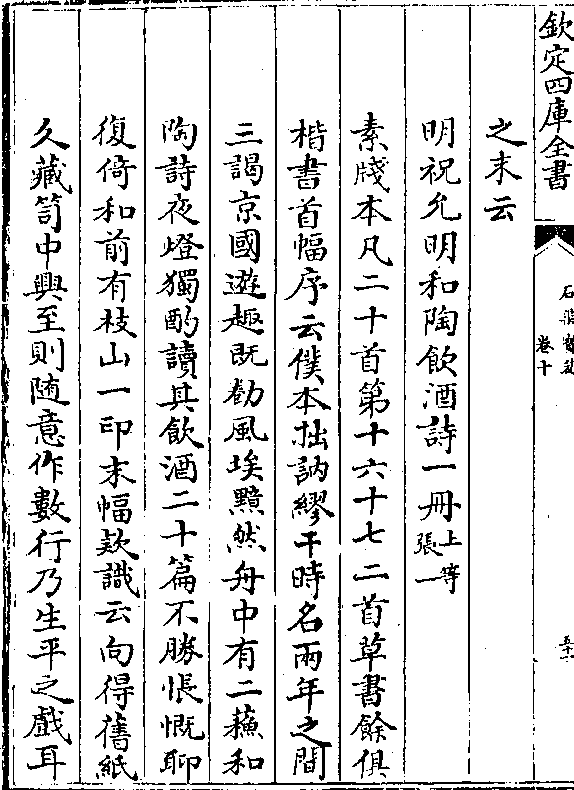 欽定四庫全書
石渠寳笈
卷十
之末云
明祝允明和陶飲酒詩一冊上等張一
素牋本凡二十首第十六十七二首草書餘俱
楷書首幅序云僕本拙訥繆干時名兩年之間
三謁京國遊趣既勌風埃黯然舟中有二蘓和
陶詩夜燈獨酌讀其飲酒二十篇不勝悵慨聊
復倚和前有枝山一印末幅欵識云向得舊紙
久藏笥中興至則随意作數行乃生平之戲耳